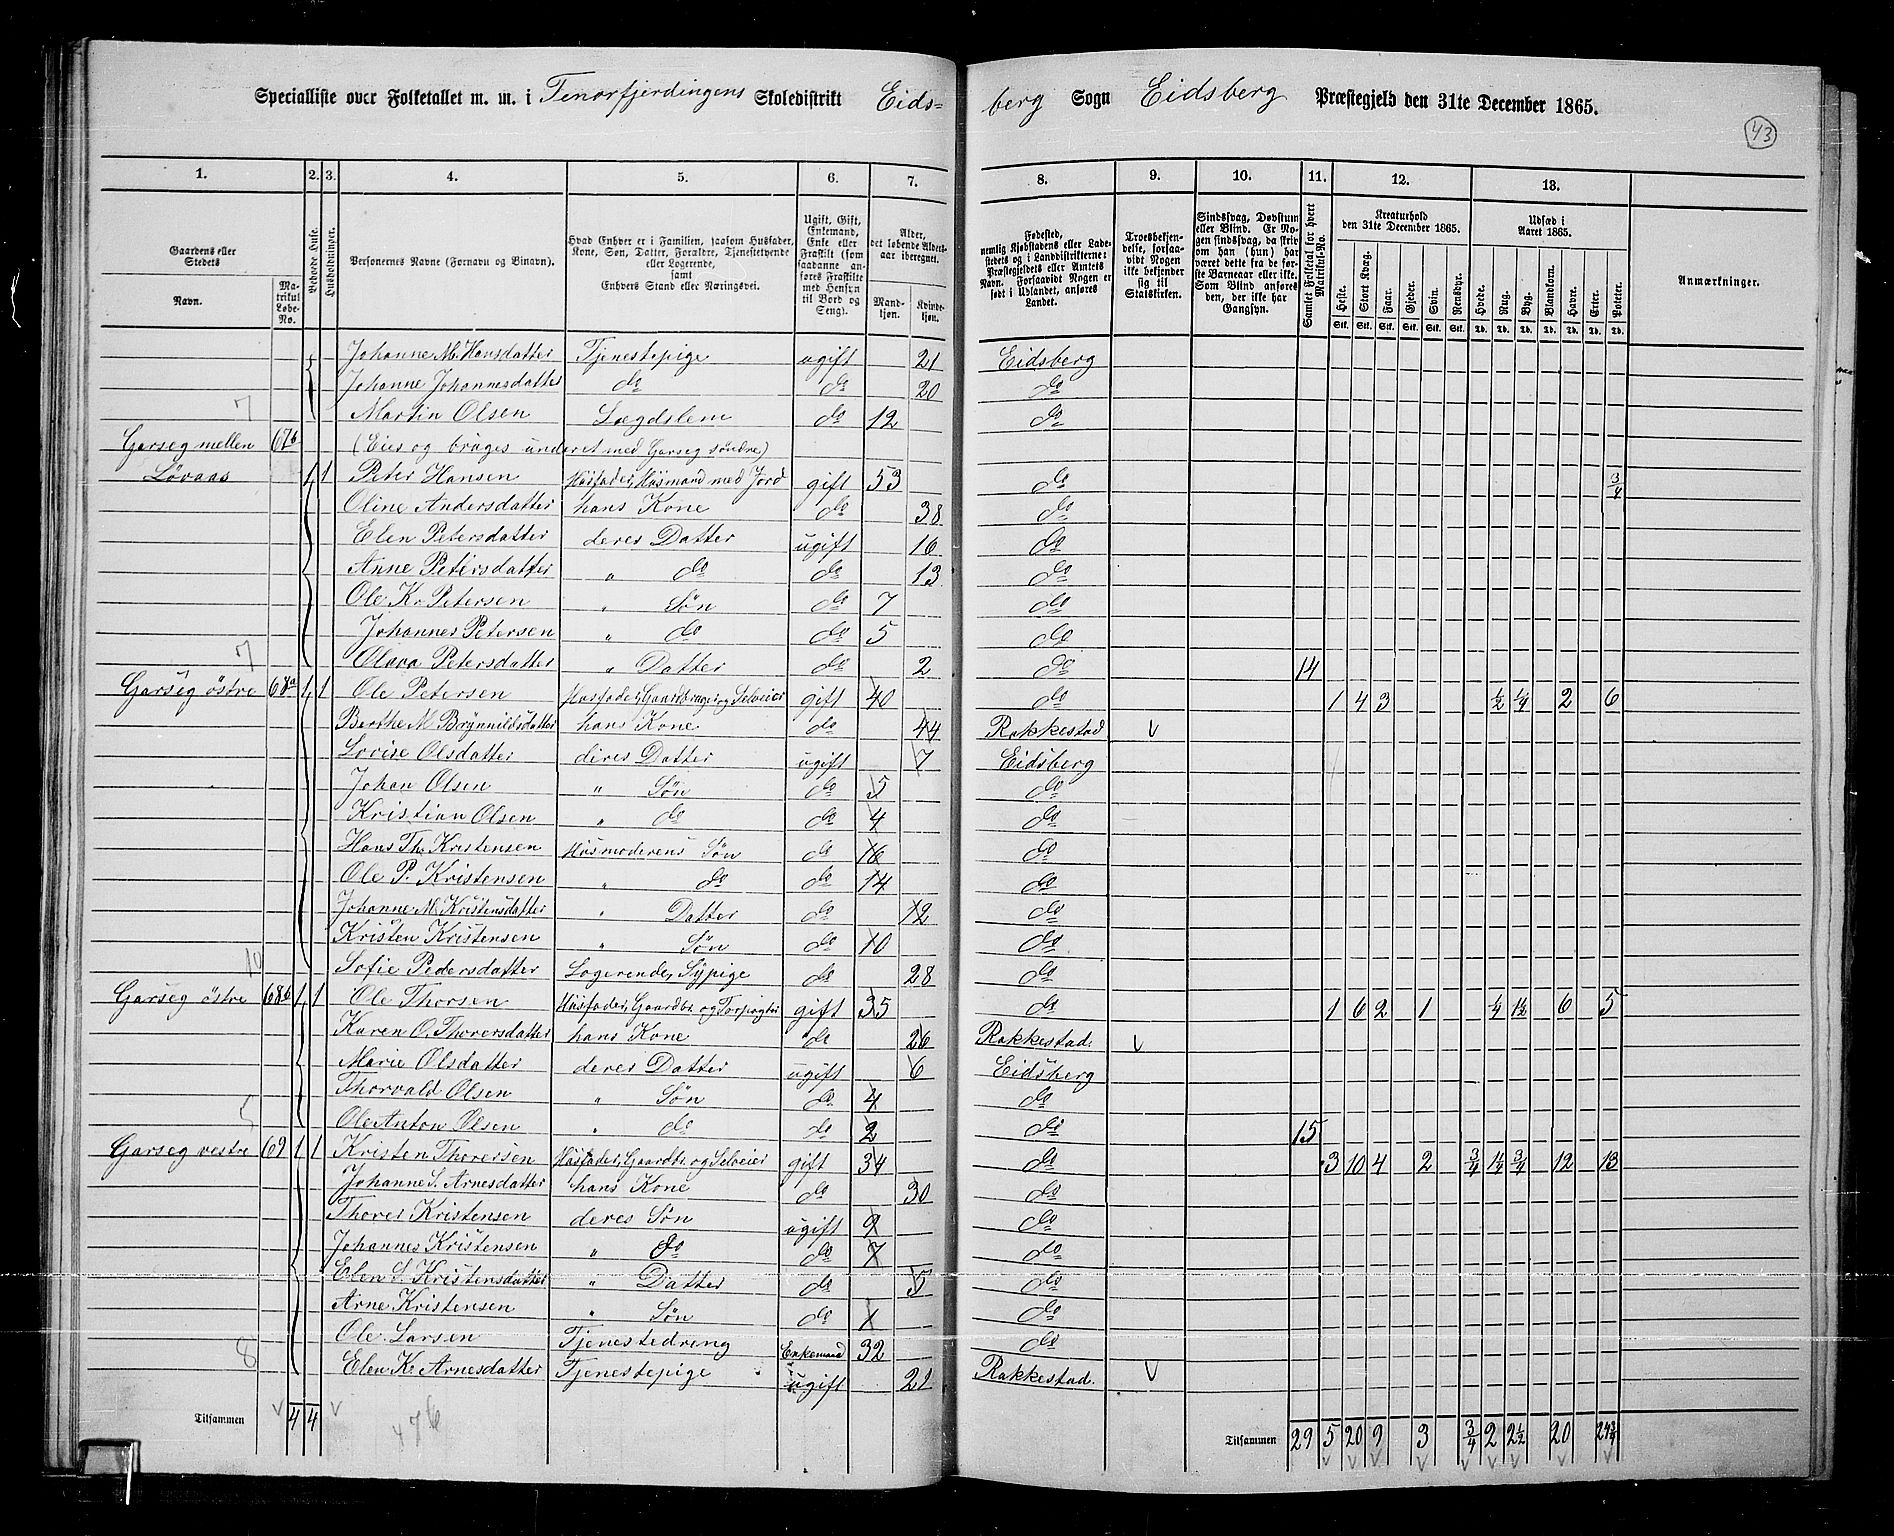 Specialliste over Folketallet m. m. i Tenorfjerdingens Skoledistrikt Eids=
berg Sogn Eidsberg Præstegjeld den 31te December 1865.
43
1. 2. 3. 4. 5. 6. 7. 8. 9. 10. 11. 12. 13.
Gaardens eller Stedets
Navn.
Matrikul Løbe-No.
Beboede Huse.
Husholdninger.
Personernes Navne (Fornavn og Binavn).
Hvad Enhver er i Familien, saasom Husfader, Kone, Søn, Datter, Forældre, Tjenestetyende eller Logerende, samt Enhvers Stand eller Næringsvei.
Ugift, Gift, Enkemand, Enke eller Fraskilt (som saadanne anføres Fraskilte med Hensyn til Bord og Seng).
Alder, det løbende Aldersaar iberegnet.
Mandkjøn. Kvindekjøn.
Fødested, nemlig Kjøbstadens eller Ladestedets og i Landdistrikterne: Præstegjeldets eller Amtets Navn. Forsaavidt Nogen er født i Udlandet, anføres Landet.
Troesbekjendelse, forsaavidt Nogen ikke bekjender sig til Statskirken.
Sindssvag, Døvstum eller Blind. Er Nogen sindssvag, da skrives om han (hun) har været dette fra de første Barneaar eller ikke. Som Blind anføres den, der ikke har Gangsyn.
Samlet Folketal for hvert Matrikul-No.
Kreaturhold den 31te December 1865.
Heste. Stort Kvæg. Faar. Gjeder. Svin. Rensdyr.
Udsæd i Aaret 1865.
Hvede. Rug. Byg. Blandkorn. Havre. Erter. Poteter.
Anmærkninger.
Johanne M. Hansdatter Tjenestepige ugift 21 Eidsberg
Johanne Johannesdatter do do 20 do
7 Martin Olsen Lægdslem do 12 do
Garseg mellen 67b (Eies og bruges underet med Garseg søndre)
Løvaas 1 1 Peter Hansen Husfader, Husmand med Jord gift 53 do 3/4
Oline Andersdatter hans Kone do 38 do
Elen Petersdatter deres Datter ugift 16 do
Anne Petersdatter " do do 13 do
Ole Kr. Petersen " Søn do 7 do
Johannes Petersen " do do 5 do
7 Olava Petersdatter " Datter do 2 do 14
Garseg østre 68a 1 1 Ole Petersen Husfader, Gaardbruger og Selveier gift 40 do 1 4 3 1/2 1/4 2 6
Berthe M. Brynnildsdatter hans Kone do 44 Rakkestad v
Lovise Olsdatter deres Datter ugift 7 Eidsberg
Johan Olsen " Søn do 5 do
Kristian Olsen " do do 4 do
Hans Th. Kristensen Husmoderens Søn do 16 do
Ole P. Kristensen " do do 14 do
Johanne M. Kristensdatter " Datter do 12 do
Kristen Kristensen " Søn do 10 do
10 Sofie Pedersdatter Logerende, Sypige do 28 do
Garseg østre 68b 1 1 Ole Thorsen Husfader, Gaardbr. og gift 35 do 1 6 2 1 1/4 1 1/2 6 5
Karen O. Thorersdatter hans Kone do 26 Rakkestad. v
Marie Olsdatter deres Datter ugift 6 Eidsberg
Thorvald Olsen " Søn do 4 do
5 Ole Anton Olsen " do do 2 do 15
Garseg vestre 69 1 1 Kristen Thorersen Husfader, Gaardbr. og Selveier gift 34 do 3 10 4 2 3/4 1 1/4 3/4 12 13
Johanne S. Arnesdatter hans Kone do 30 do
Thorer Kristensen deres Søn ugift 9 do
Johannes Kristensen " do do 7 do
Elen S. Kristensdatter " Datter do 5 do
Arne Kristensen " Søn do 1 do
Ole Larsen Tjenestedreng Enkemand 32 do
8 Elen K. Arnesdatter Tjenestepige ugift 21 Rakkestad. v
Tilsammen v 4 4 v
Tilsammen 29 5 20 9 3 3/4 2 2 1/2 20 24 3/4